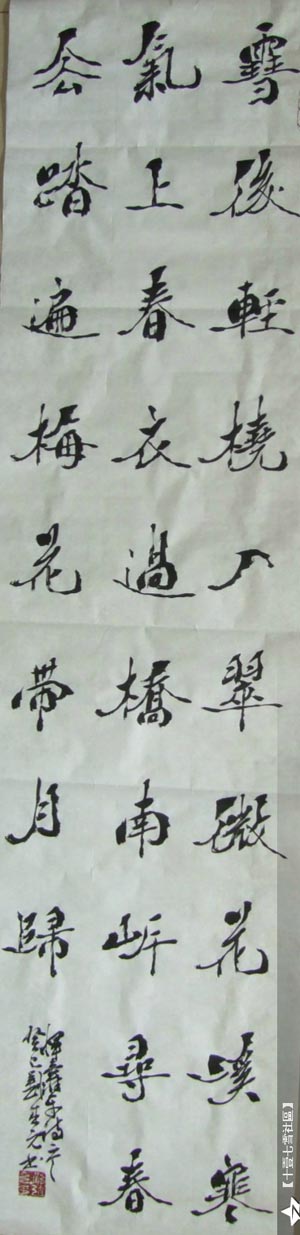 雪後輕橈入翠微花溪寒
氣上春衣過橋南岸尋春
去踏遍梅花帶月歸
惲壽平詩
癸巳